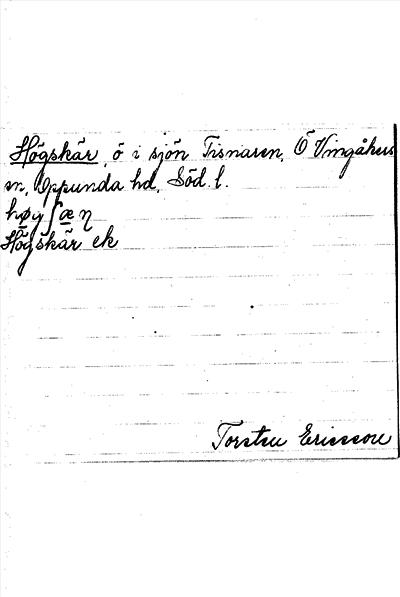 Högskär, ö i sjön Tisnaren, Ö Vingåkers
sn, Oppunda hd, Söd. l.
Högskär ek
Torsten Ericsson